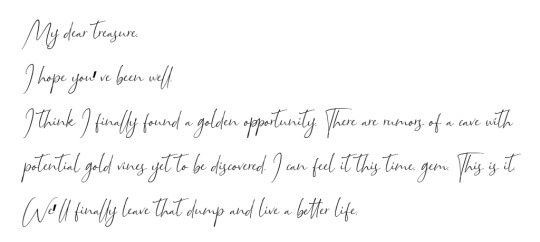 My dear treasure.
I hope you've been well.
I think I finally found a golden opportunity. There are rumors of a cave with
potential gold vines yet to be discovered. I can feel it this time, gem. This is it.
We'll finally leave that dump and live a better life.